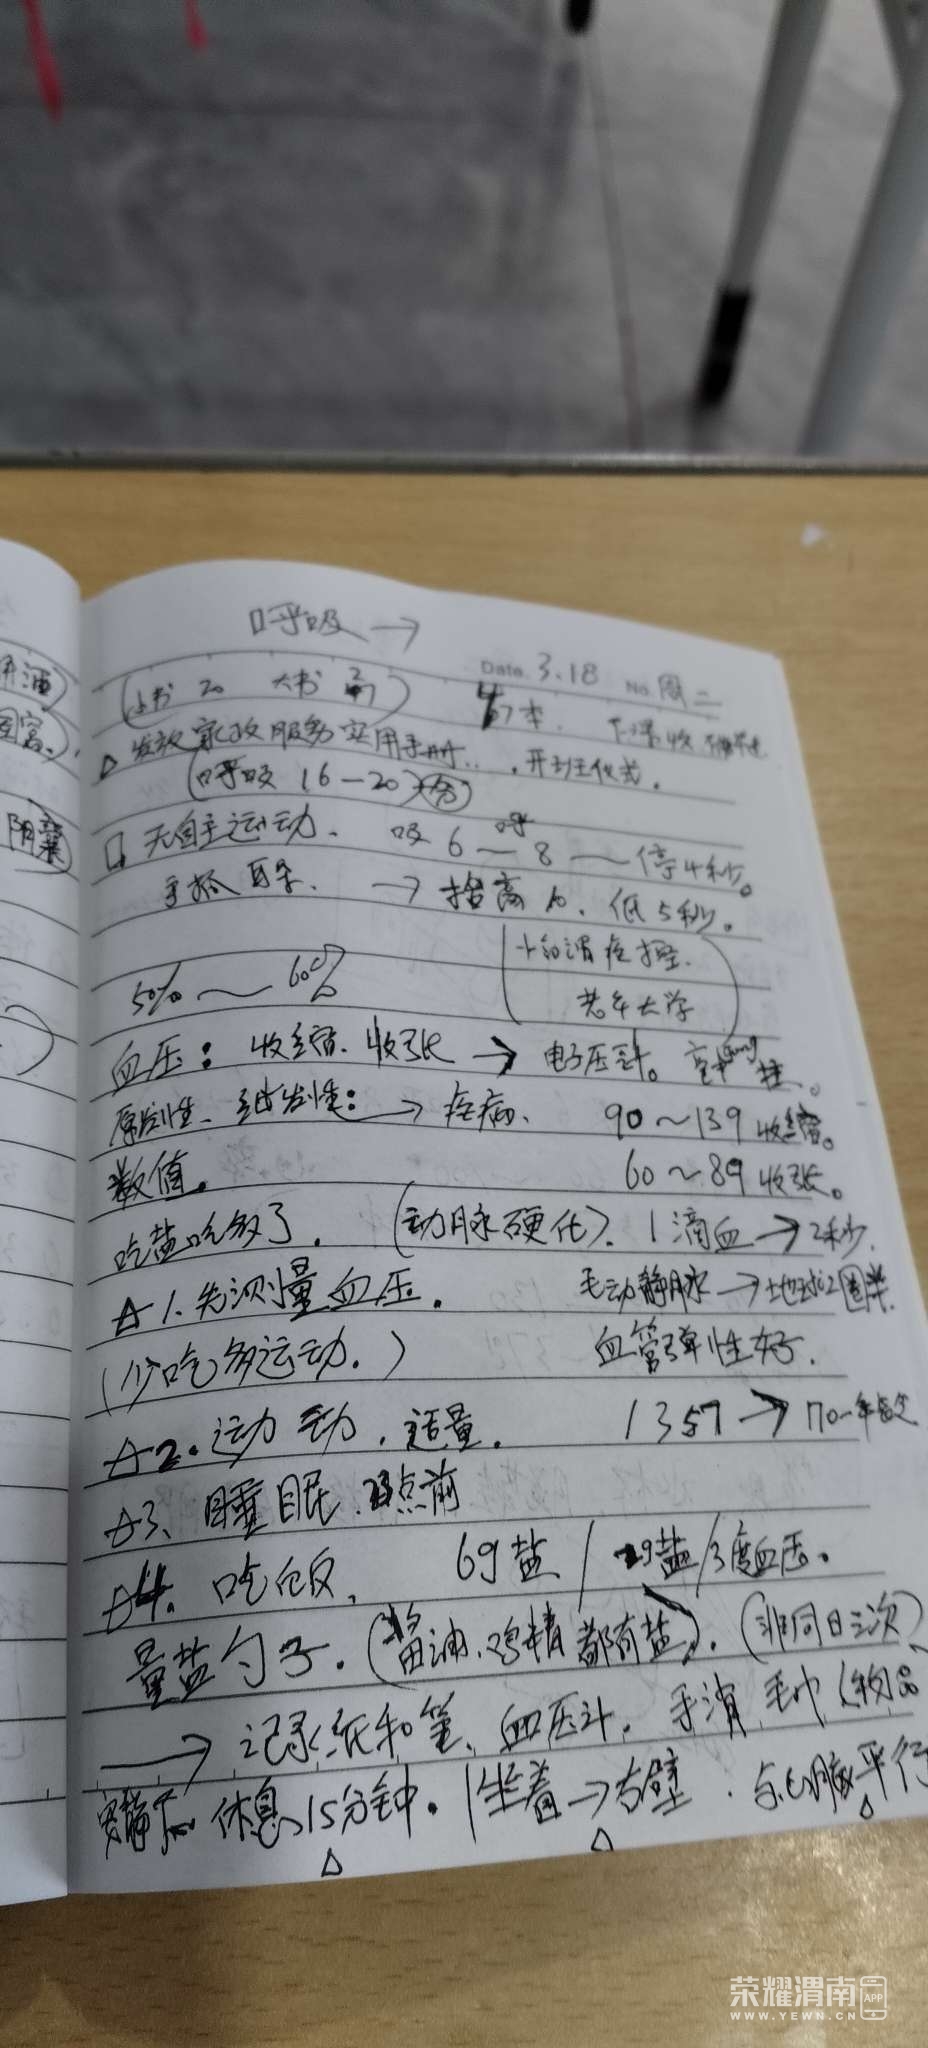 呼吸→
Date. 3.18 No. 周二
小书 20 大书 47本.
△ 发放家政服务实用手册... 开班仪式.
(呼吸 16—20)分
无自主运动. 吸 6～8～停4秒。
手抓 → 抬高10. 低5秒。
50%～60%
老年大学
血压: 收缩. 收张 → 电子压计。
原发性. 继发性: → 疾病. 90～139 收缩。
数值。 60～89 收张。
吃盐吃多了. (动脉硬化). 1滴血→2秒.
☆1.先测量血压. 毛动静脉→地球2圈半.
(少吃多运动.) 血管弹性好.
☆2.运动 动.适量. 1357→170-年龄
☆3、睡眠. 点前
☆4. 吃饭. 6g盐/2g盐/3度血压.
量盐勺子. (酱油.鸡精都有盐). (非同日三次)
→记录纸和笔、血压计. 手消 毛巾(物品
安静下 休息15分钟. 坐着→右壁. 与心脏平行
荣耀渭南APP
WWW.YEWN.CN